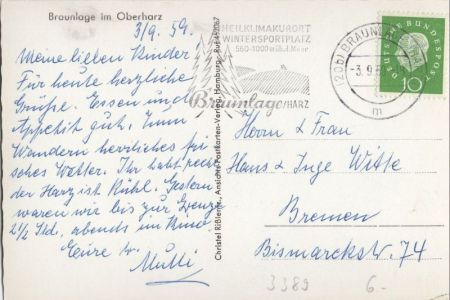 Braunlage im Oberharz
3/9. 59.
Meine lieben Kinder
Für heute herzliche
Grüße. Essen und
Appetit gut, zum
Wandern herrliches fri-
sches Wetter. Ihr habt recht
der Harz ist kühl. Gestern
waren wir bis zur Grenze
2½ Std, abends im Kino
Eure
Mutti
Christel Rißleite, Ansichts-Postkarten-Verlag, Hamburg
HEILKLIMAKURORT
WINTERSPORTPLATZ
560-1000 m ü.d. Meer
Braunlage/HARZ
(20b) BRAUNLAGE
-3.9.
m
DEUTSCHE BUNDESPOST
10
Herrn & Frau
Hans & Inge Witte
Bremen
Bismarckstr. 74
3389
6.-